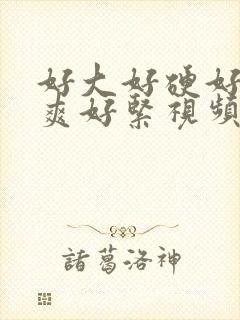 好大好硬好
爽好緊視頻
諸葛洛神